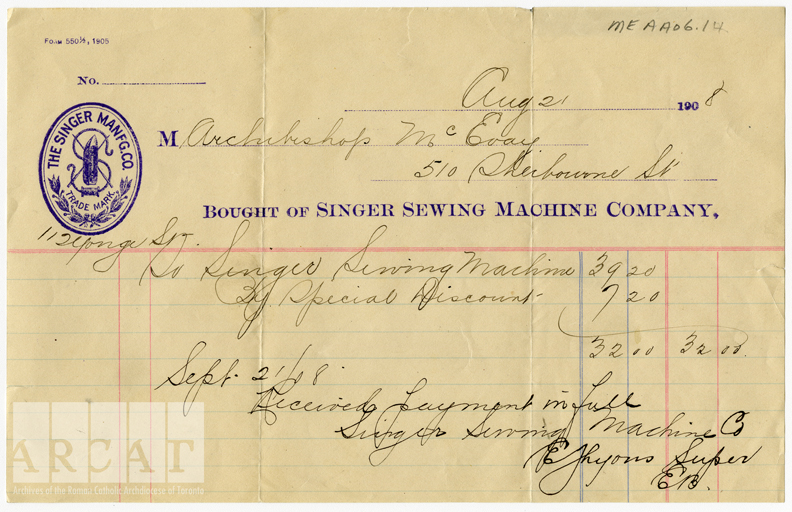 ME AA06.14
FORM 550½, 1905
No.
Aug 21 1908
THE SINGER MANFG. CO.
TRADE MARK.
M Archibishop McEvay
510 Sherbourne St
BOUGHT OF SINGER SEWING MACHINE COMPANY,
112 Yonge St.
To Singer Sewing Machine 39 20
By Special Discount 7 20
32 00 32 00
Sept. 21/08.
Received payment in full
Singer Sewing Machine Co
Lyons Super
ARCAT
Archives of the Roman Catholic Archdiocese of Toronto